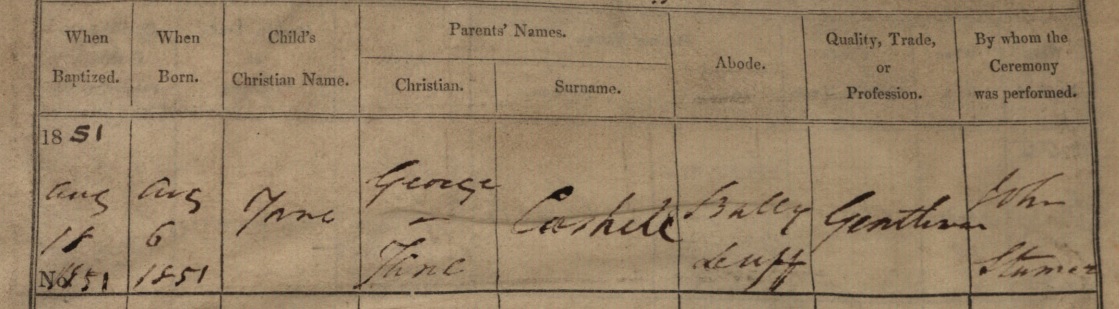 When Baptized. When Born. Child's Christian Name. Parents' Names. Christian. Surname. Abode. Quality, Trade, or Profession. By whom the Ceremony was performed.
1851
Aug Aug George John
18 6 Jane Bally Gentleman
No 1851 1851 Jane duff